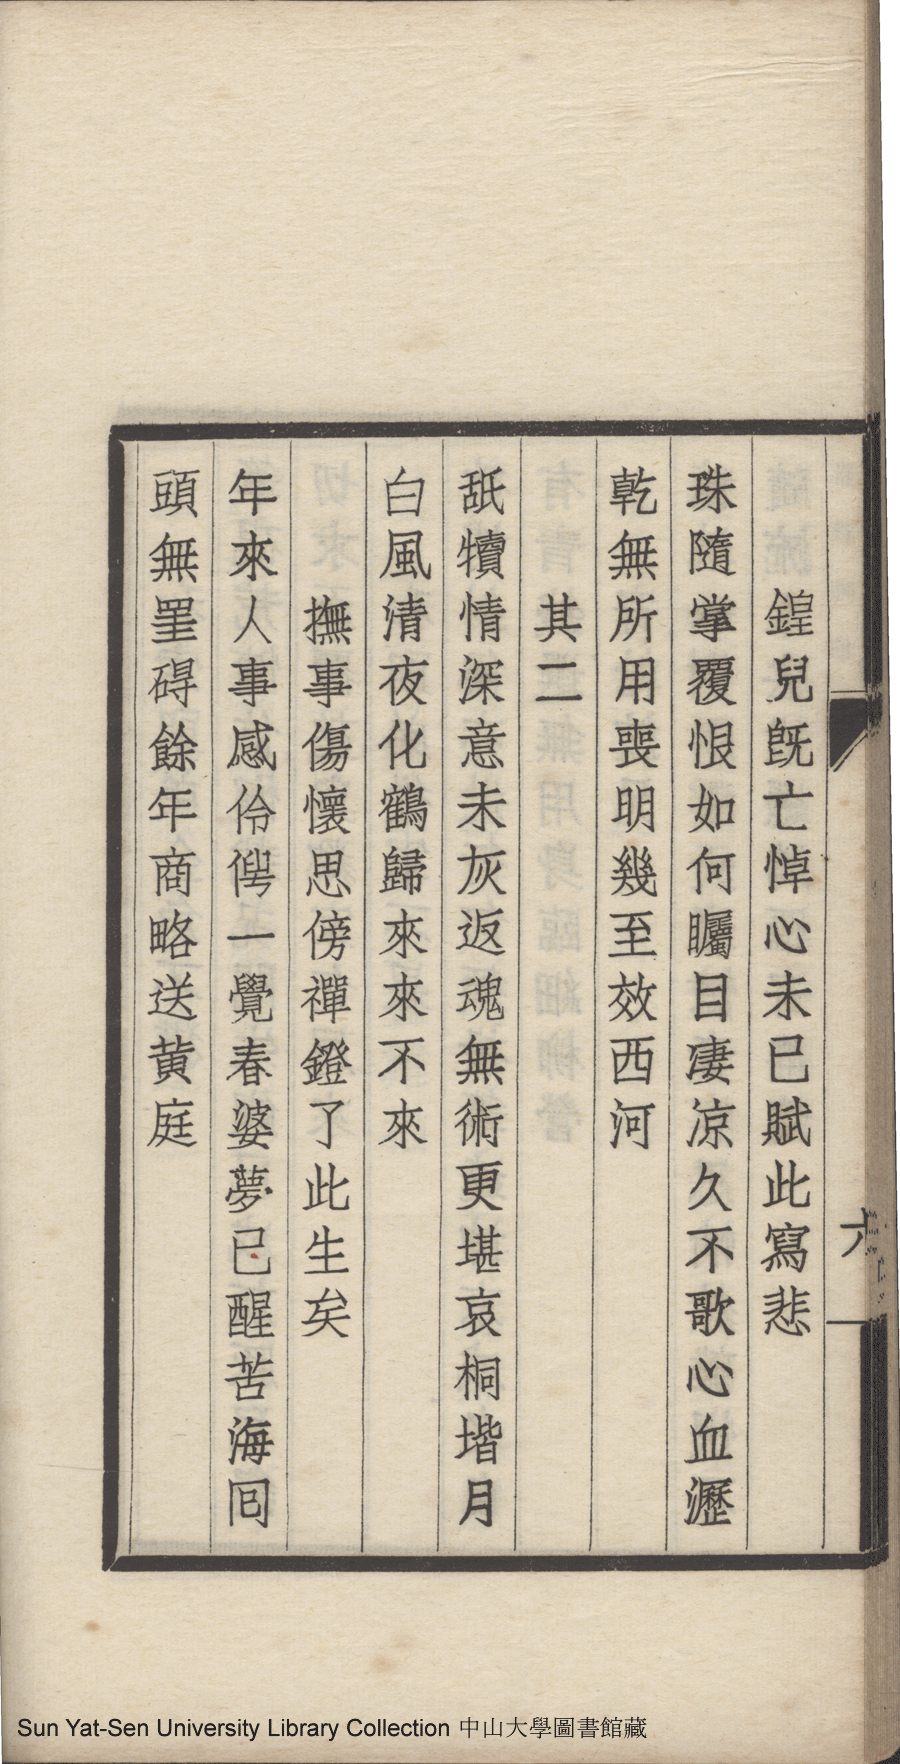 鍠兒旣亡悼心未已賦此寫悲
珠隨掌覆恨如何矚目凄涼久不歌心血瀝
乾無所用喪明幾至效西河
其二
舐犢情深意未灰返魂無術更堪哀桐堦月
白風清夜化鶴歸來來不來
撫事傷懷思傍禪鐙了此生矣
年來人事感伶俜一覺春婆夢已醒苦海囘
頭無罣碍餘年商略送黄庭
六
Sun Yat-Sen University Library Collection 中山大學圖書館藏